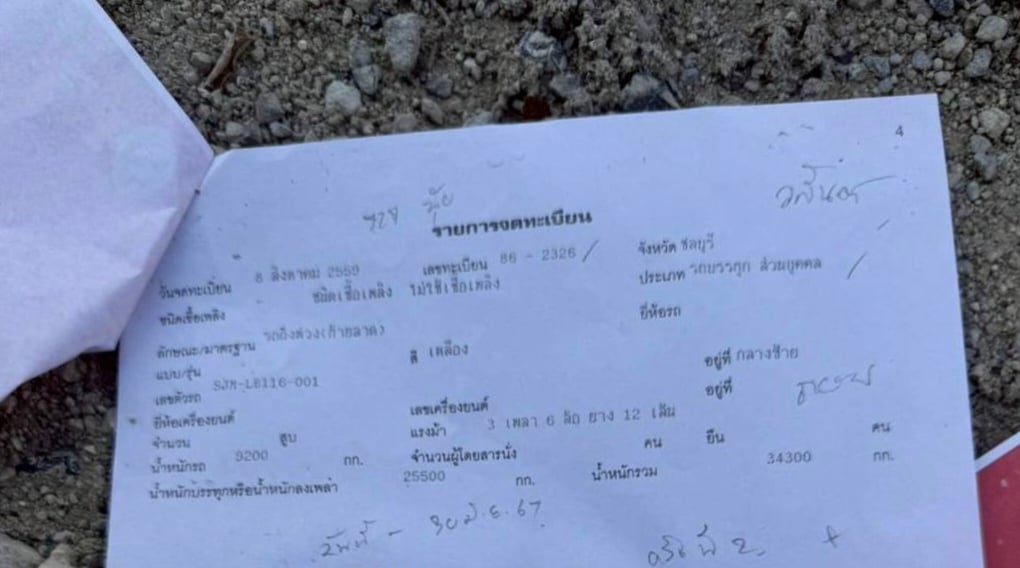 4
รายการจดทะเบียน
วันจดทะเบียน 8 สิงหาคม 2559 เลขทะเบียน 86 - 2326 / จังหวัด ชลบุรี
ชนิดเชื้อเพลิง ชนิดเชื้อเพลิง ไม่ใช้เชื้อเพลิง ประเภท รถบรรทุก ส่วนบุคคล /
ลักษณะ/มาตรฐาน รถกึ่งพ่วง(ท้ายลาด) ยี่ห้อรถ
แบบ/รุ่น สี เหลือง
เลขตัวรถ SJM-LB116-001 อยู่ที่ กลางซ้าย
ยี่ห้อเครื่องยนต์ เลขเครื่องยนต์ อยู่ที่
จำนวน สูบ แรงม้า 3 เพลา 6 ล้อ ยาง 12 เส้น
น้ำหนักรถ 9200 กก. จำนวนผู้โดยสารนั่ง คน ยืน คน
น้ำหนักบรรทุกหรือน้ำหนักลงเพลา 25500 กก. น้ำหนักรวม 34300 กก.
30 มิ.ย. 67